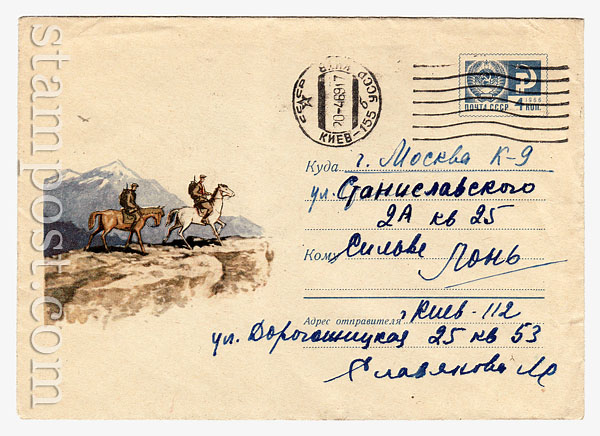 stampost.com
КИЕВ
УССР
20-4 69 17
КИЕВ-155
1966
ПОЧТА СССР 4 КОП.
Куда г. Москва К-9
ул. Станиславского
2А кв 25
Кому Силове Лонь
Адрес отправителя г Киев-112
ул. Дорогожицкая 25 кв 53